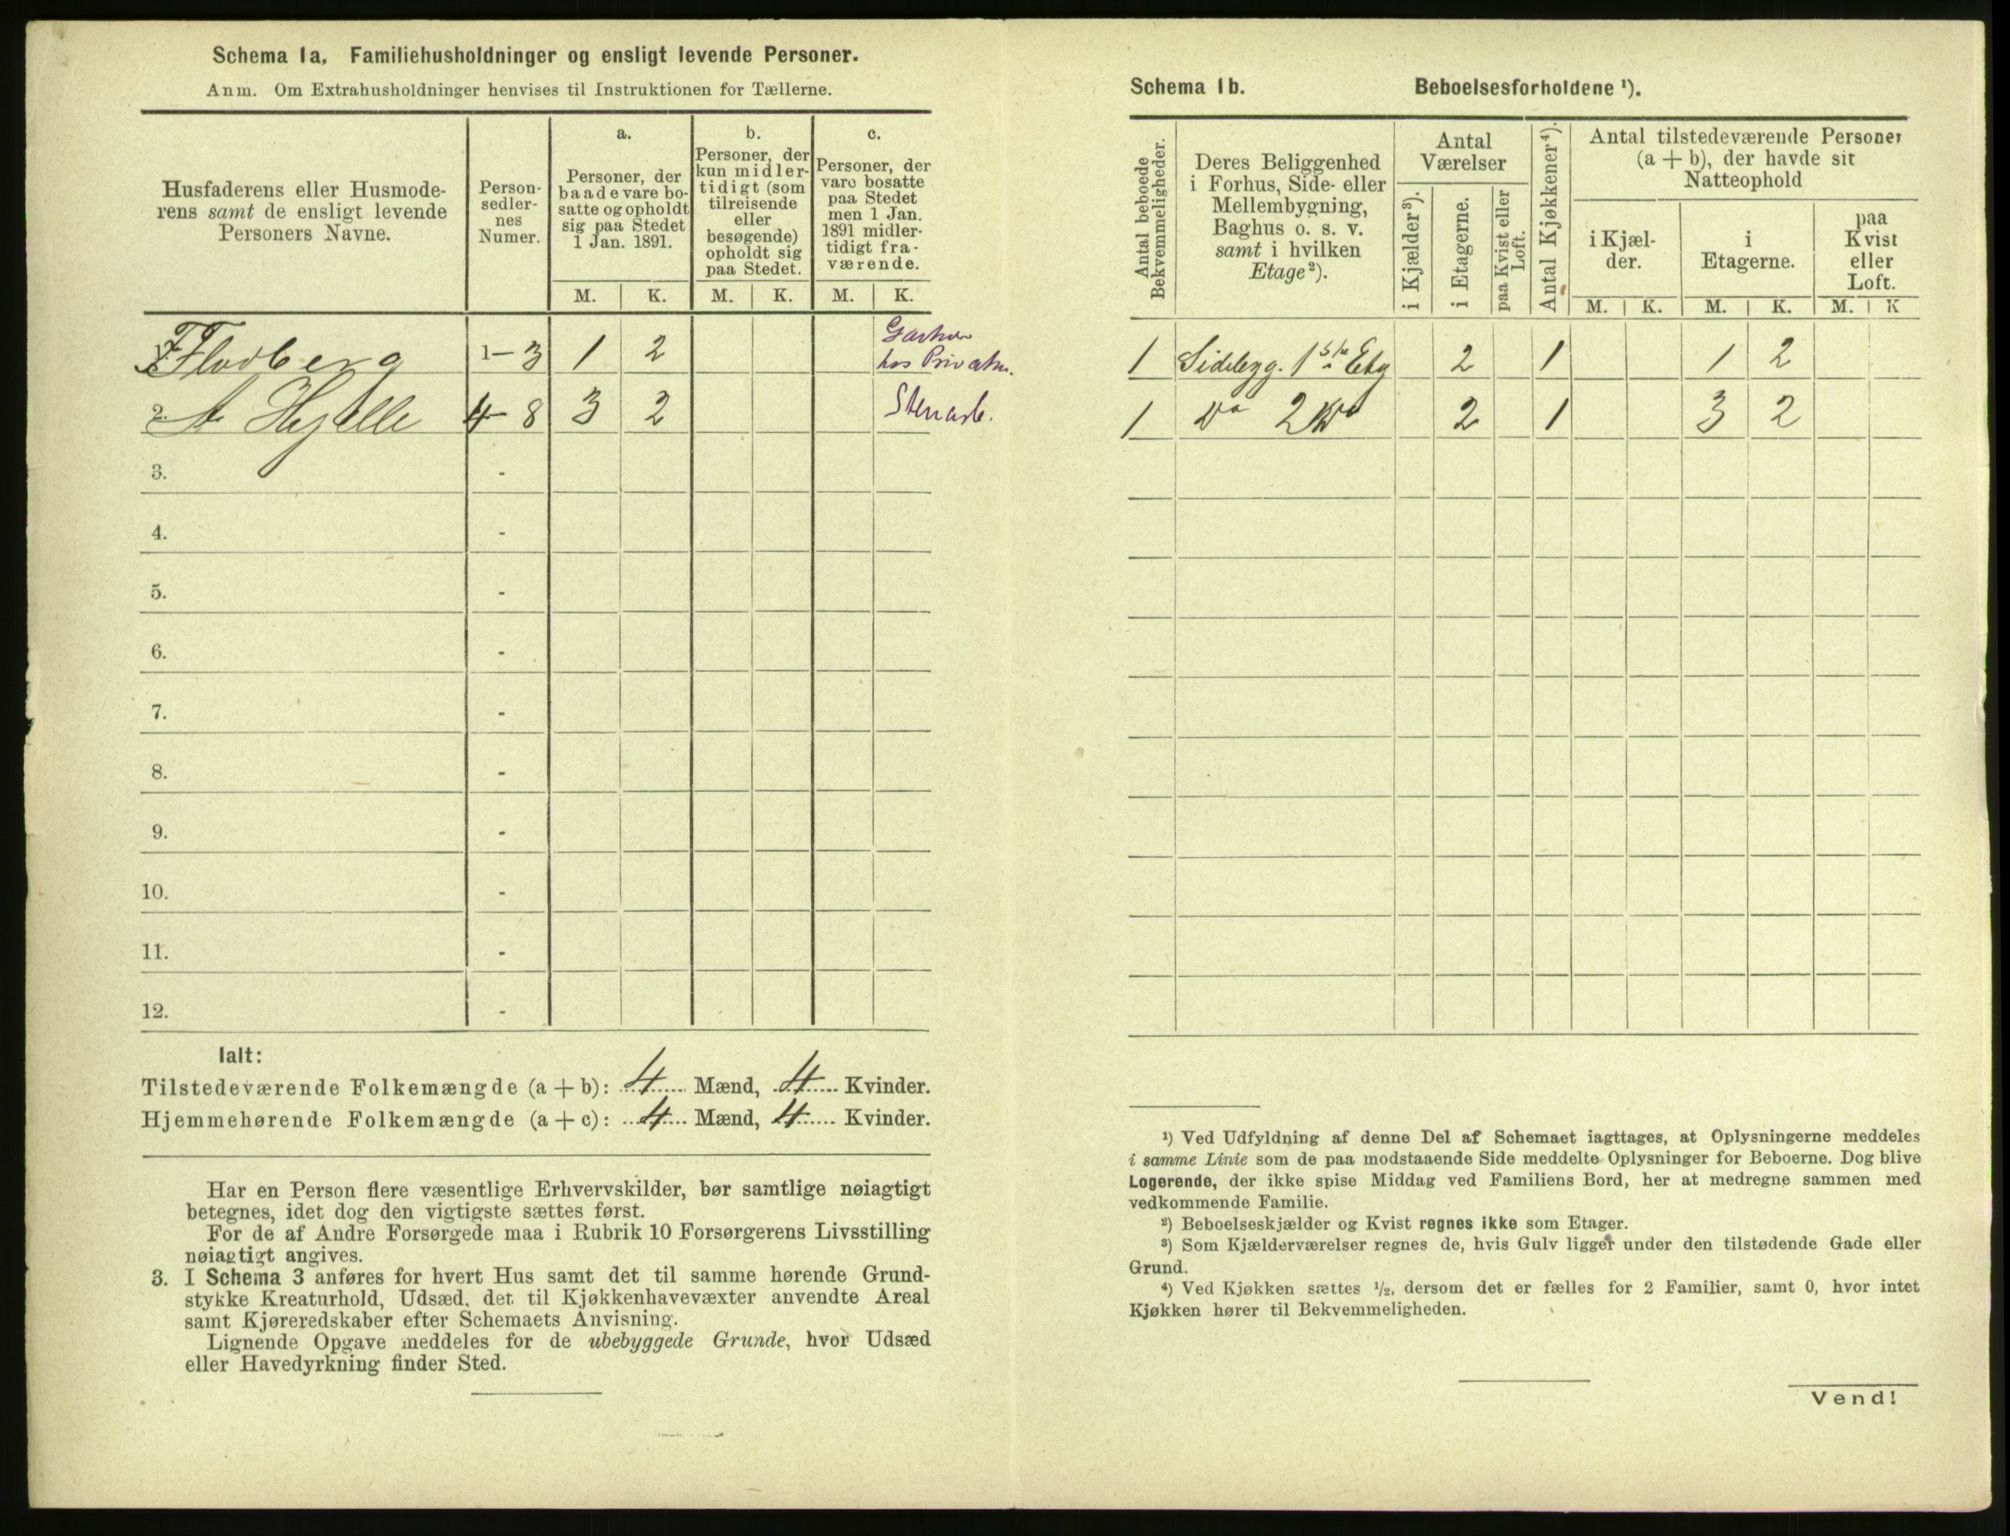 Schema 1a. Familiehusholdninger og ensligt levende Personer.
Anm. Om Extrahusholdninger henvises til Instruktionen for Tællerne.
Husfaderens eller Husmode-
rens samt de ensligt levende
Personers Navne.
Person-
sedler-
nes
Numer.
a.
Personer, der
baade vare bo-
satte og opholdt
sig paa Stedet
1 Jan. 1891.
b.
Personer, der
kun midler-
tidigt (som
tilreisende
eller
besøgende)
opholdt sig
paa Stedet.
c.
Personer, der
vare bosatte
paa Stedet
men 1 Jan.
1891 midler-
tidigt fra-
værende.
M. K. M. K. M. K.
Flodberg 1-3 1 2
hos Privatm.
2. A Hjelle 4-8 3 2 Stenarb.
3. -
4. -
5. -
6. -
7. -
8. -
9. -
10. -
11. -
12. -
Ialt:
Tilstedeværende Folkemængde (a + b): 4 Mænd, 4 Kvinder.
Hjemmehørende Folkemængde (a + c): 4 Mænd, 4 Kvinder.
Har en Person flere væsentlige Erhvervskilder, bør samtlige nøiagtigt
betegnes, idet dog den vigtigste sættes først.
For de af Andre Forsørgede maa i Rubrik 10 Forsørgerens Livsstilling
nøiagtigt angives.
3. I Schema 3 anføres for hvert Hus samt det til samme hørende Grund-
stykke Kreaturhold, Udsæd, det til Kjøkkenhavevæxter anvendte Areal
samt Kjøreredskaber efter Schemaets Anvisning.
Lignende Opgave meddeles for de ubebyggede Grunde, hvor Udsæd
eller Havedyrkning finder Sted.
Schema 1b. Beboelsesforholdene ¹).
Antal beboede
Bekvemmeligheder.
Deres Beliggenhed
i Forhus, Side- eller
Mellembygning,
Baghus o. s. v.
samt i hvilken
Etage²).
Antal
Værelser
i Kjælder³).
i Etagerne.
paa Kvist eller
Loft.
Antal Kjøkkener⁴).
Antal tilstedeværende Personer
(a + b), der havde sit
Natteophold
i Kjæl-
der.
i
Etagerne.
paa
Kvist
eller
Loft.
M. K. M. K. M. K
1 Sidebyg. 1ste Etg 2 1 1 2
1 do 2 do 2 1 3 2
¹) Ved Udfyldning af denne Del af Schemaet iagttages, at Oplysningerne meddeles
i samme Linie som de paa modstaaende Side meddelte Oplysninger for Beboerne. Dog blive
Logerende, der ikke spise Middag ved Familiens Bord, her at medregne sammen med
vedkommende Familie.
²) Beboelseskjælder og Kvist regnes ikke som Etager.
³) Som Kjælderværelser regnes de, hvis Gulv ligger under den tilstødende Gade eller
Grund.
⁴) Ved Kjøkken sættes ½, dersom det er fælles for 2 Familier, samt 0, hvor intet
Kjøkken hører til Bekvemmeligheden.
Vend!